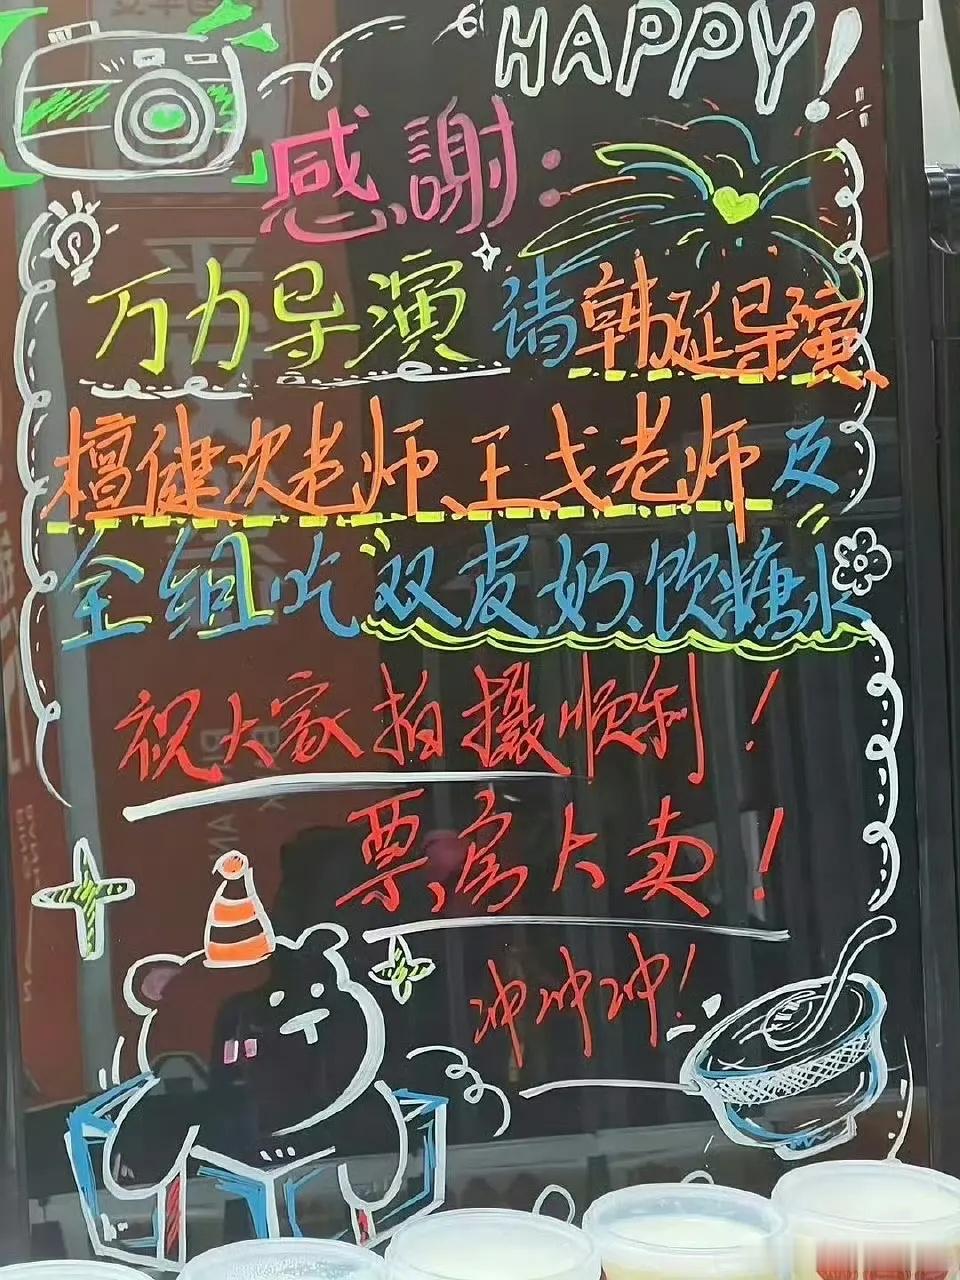 HAPPY!
感謝:
万力导演 请韩延导演
檀健次老师、王戈老师及
全组吃"双皮奶、饮糖水"
祝大家拍摄顺利!
票房大卖!
冲冲冲!